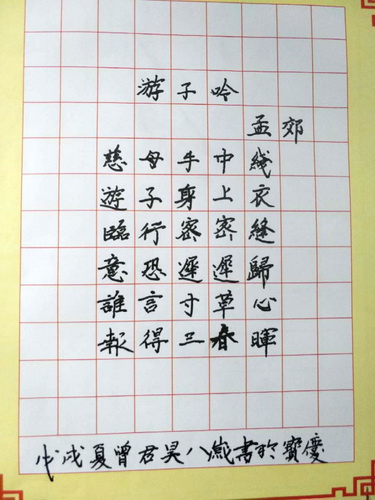 游子吟
孟郊
慈母手中綫
遊子身上衣
臨行密密縫
意恐遲遲歸
誰言寸草心
報得三春暉
戊戌夏曾君昊八書於寶慶